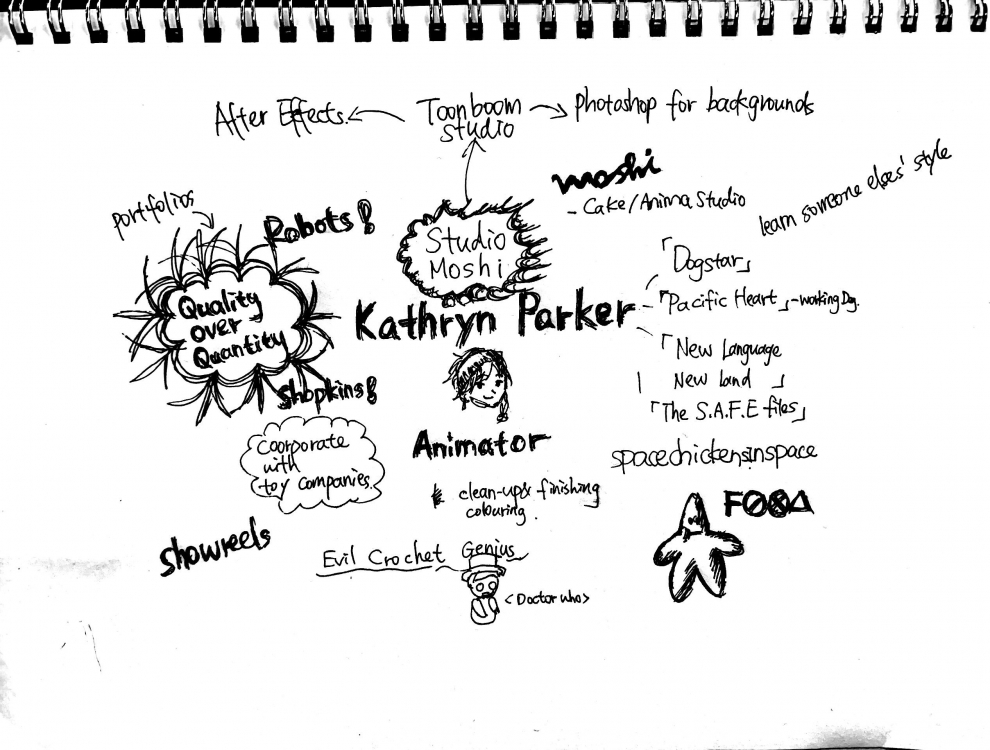 After Effects.
Toonboom
Studio
photoshop for backgrounds
moshi
- Cake/Anima Studio
learn someone elses' style
portfolios
Robots!
Studio
Moshi
Quality
over
Quantity
Kathryn Parker
「Dogstar」
「Pacific Heart」-working Dog.
「New Language
New land 」
「The S.A.F.E files」
Shopkins!
Coorporate
with
toy companies.
Animator
clean-up & finishing
colouring.
spacechickensinspace
FOOA
showreels
Evil Crochet Genius
<Doctor who>